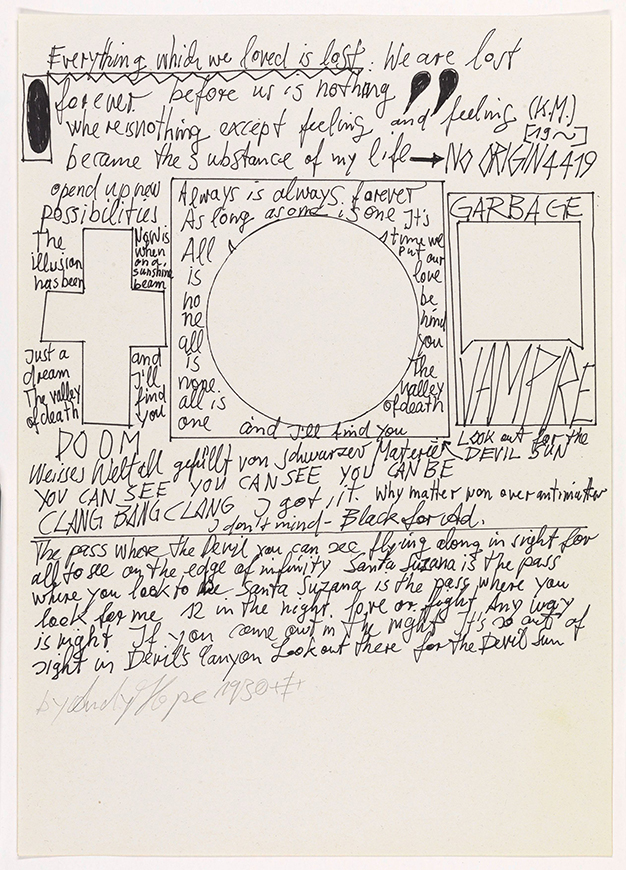 Everything which we loved is lost. We are lost
forever before us is nothing
where is nothing except feeling and feeling (K.M.)
[19~]
became the substance of my life → NO ORIGIN 4419
opend up new
possibilities
The
illusion
has been
Now is
when
on a
sunshine
beam
Just a
dream
The valley
of death
and
I'll
find
you
DOOM
Always is always forever
As long as one is one
It's
time we
put our
love
be
hind
you
The
valley
of death
All
is
no
ne
all
is
none.
all is
one
and I'll find you
GARBAGE
VAMPIRE
Look out for the
DEVIL SUN
Weisses Weltall gefüllt von schwarzer Materie
YOU CAN SEE YOU CAN SEE YOU CAN BE
CLANG BANG CLANG I got it. Why matter won over antimatter
I don't mind - Black for Ad.
The pass where the Devil you can see flying along in sight for
all to see on the edge of infinity Santa Suzana is the pass
where you look to be Santa Suzana is the pass where you
look for me 12 in the night. love or fight Any way
is right If you come out in the night It's so out of
sight in Devil's Canyon Look out there for the Devil Sun
by Andy Hope 1930